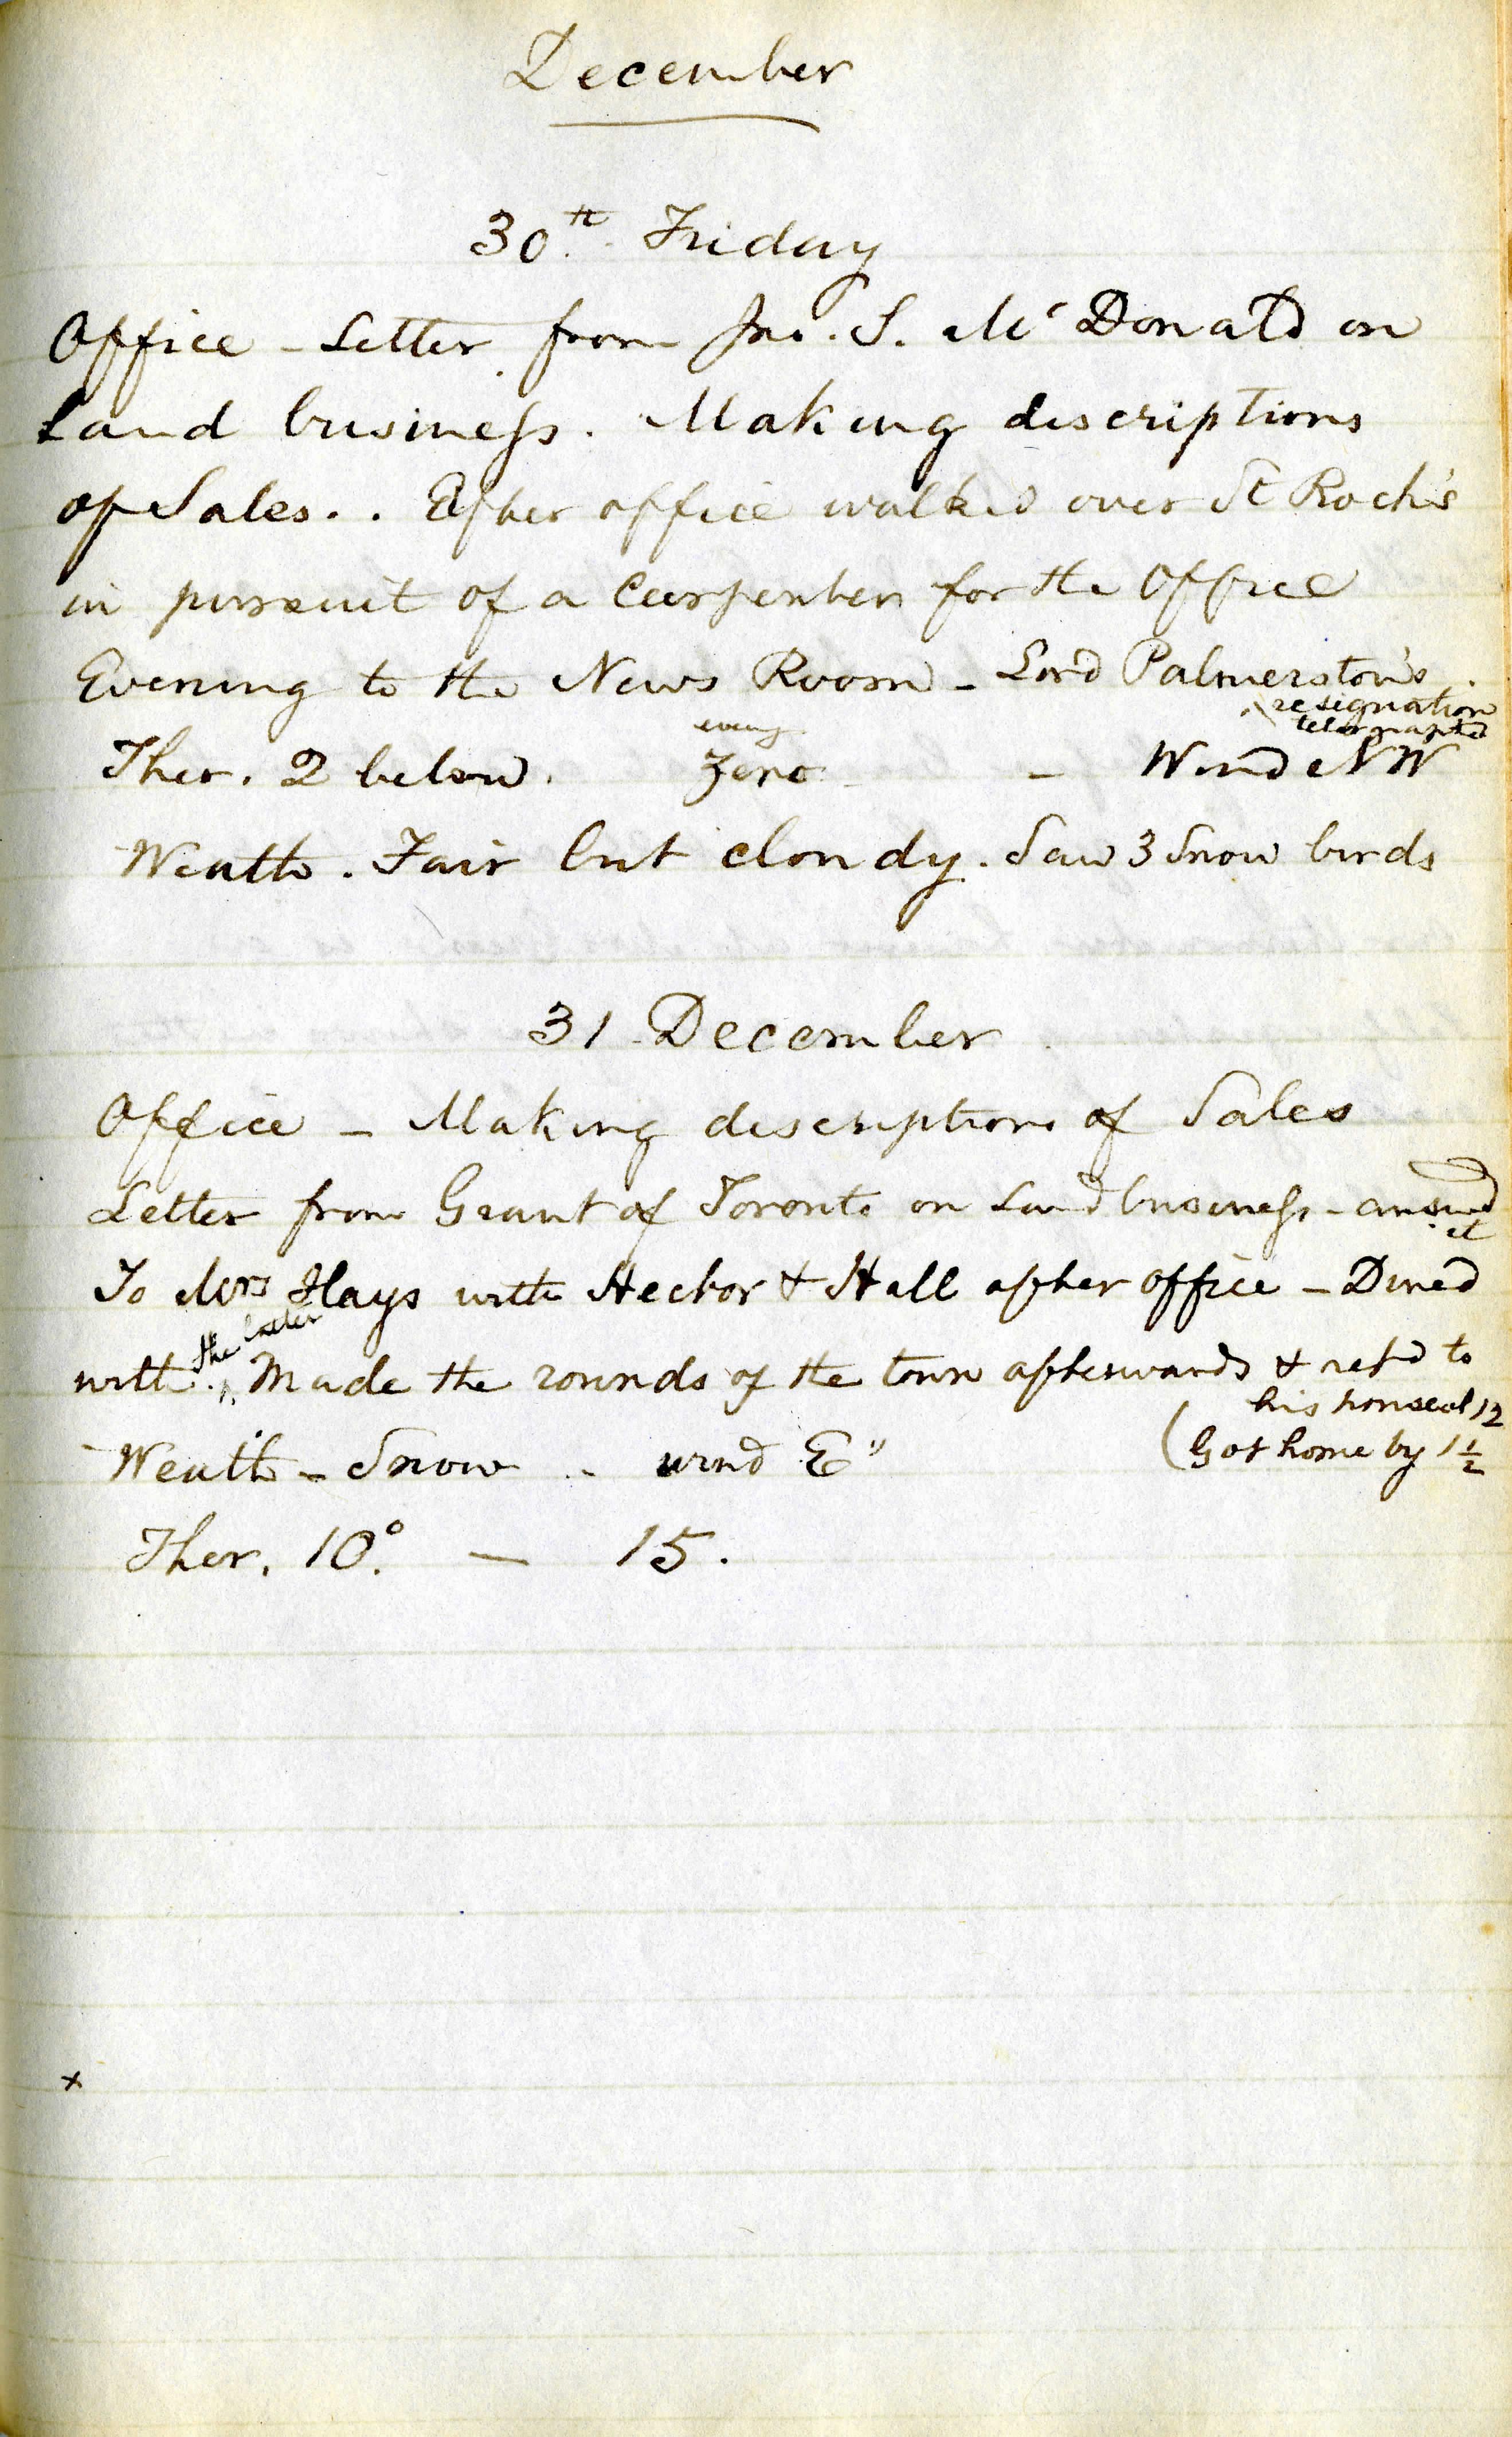 December
30th Friday
Office - Letter from Jno. S. McDonald on
Land business. Making descriptions
of Sales.. After office walked over St Roch's
in pursuit of a Carpenter for the Office
Evening to the News Room - Lord Palmerston's
resignation
telegraphed
eveng
Ther. 2 below. Zero - Wind NW
Weath. Fair but cloudy. Saw 3 Snow birds
31 December
Office - Making descriptions of Sales
Letter from Grant of Toronto on Land business - answd
it
To Mrs Hays with Hector & Hall after office - Dined
with the latter. Made the rounds of the town afterwards & retd to
his house at 12
Weath - Snow - wind E" (Got home by 1 1/2
Ther. 10° - 15.
x